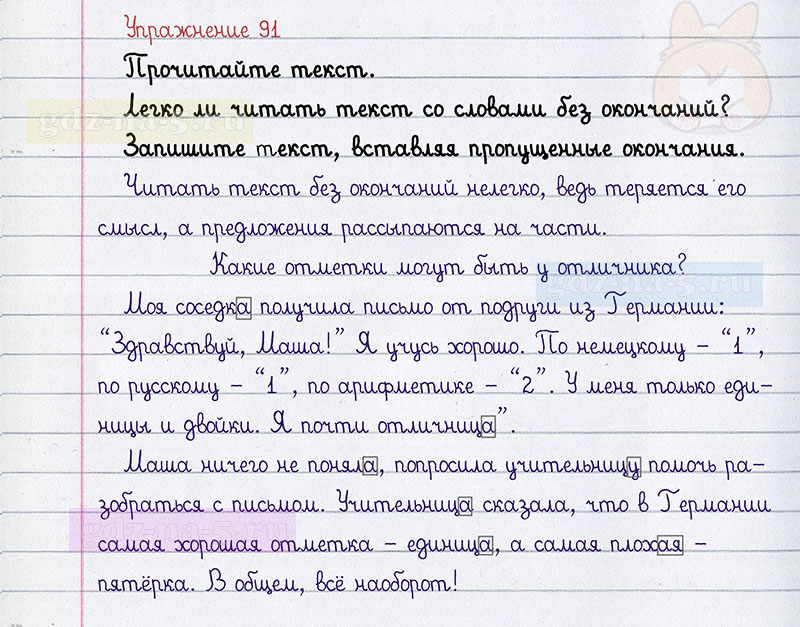 Упражнение 91
Прочитайте текст.
Легко ли читать текст со словами без окончаний?
gdz-na-5.ru
Запишите текст, вставляя пропущенные окончания.
Читать текст без окончаний нелегко, ведь теряется его
смысл, а предложения рассыпаются на части.
Какие отметки могут быть у отличника?
gdz-na-5.ru
Моя соседка получила письмо от подруги из Германии:
“Здравствуй, Маша!” Я учусь хорошо. По немецкому – “1”,
по русскому – “1”, по арифметике – “2”. У меня только еди–
ницы и двойки. Я почти отличница”.
Маша ничего не поняла, попросила учительницу помочь ра–
зобраться с письмом. Учительница сказала, что в Германии
gdz-na-5.ru
самая хорошая отметка – единица, а самая плохая –
пятёрка. В общем, всё наоборот!